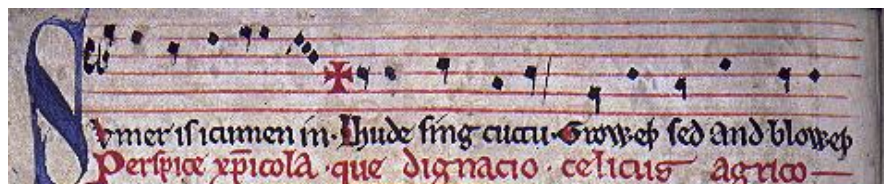 Svmer is icumen in· Lhude sing cuccu· Groweþ sed and bloweþ
Perspice xp̅icola · que dignacio · celicus agrico